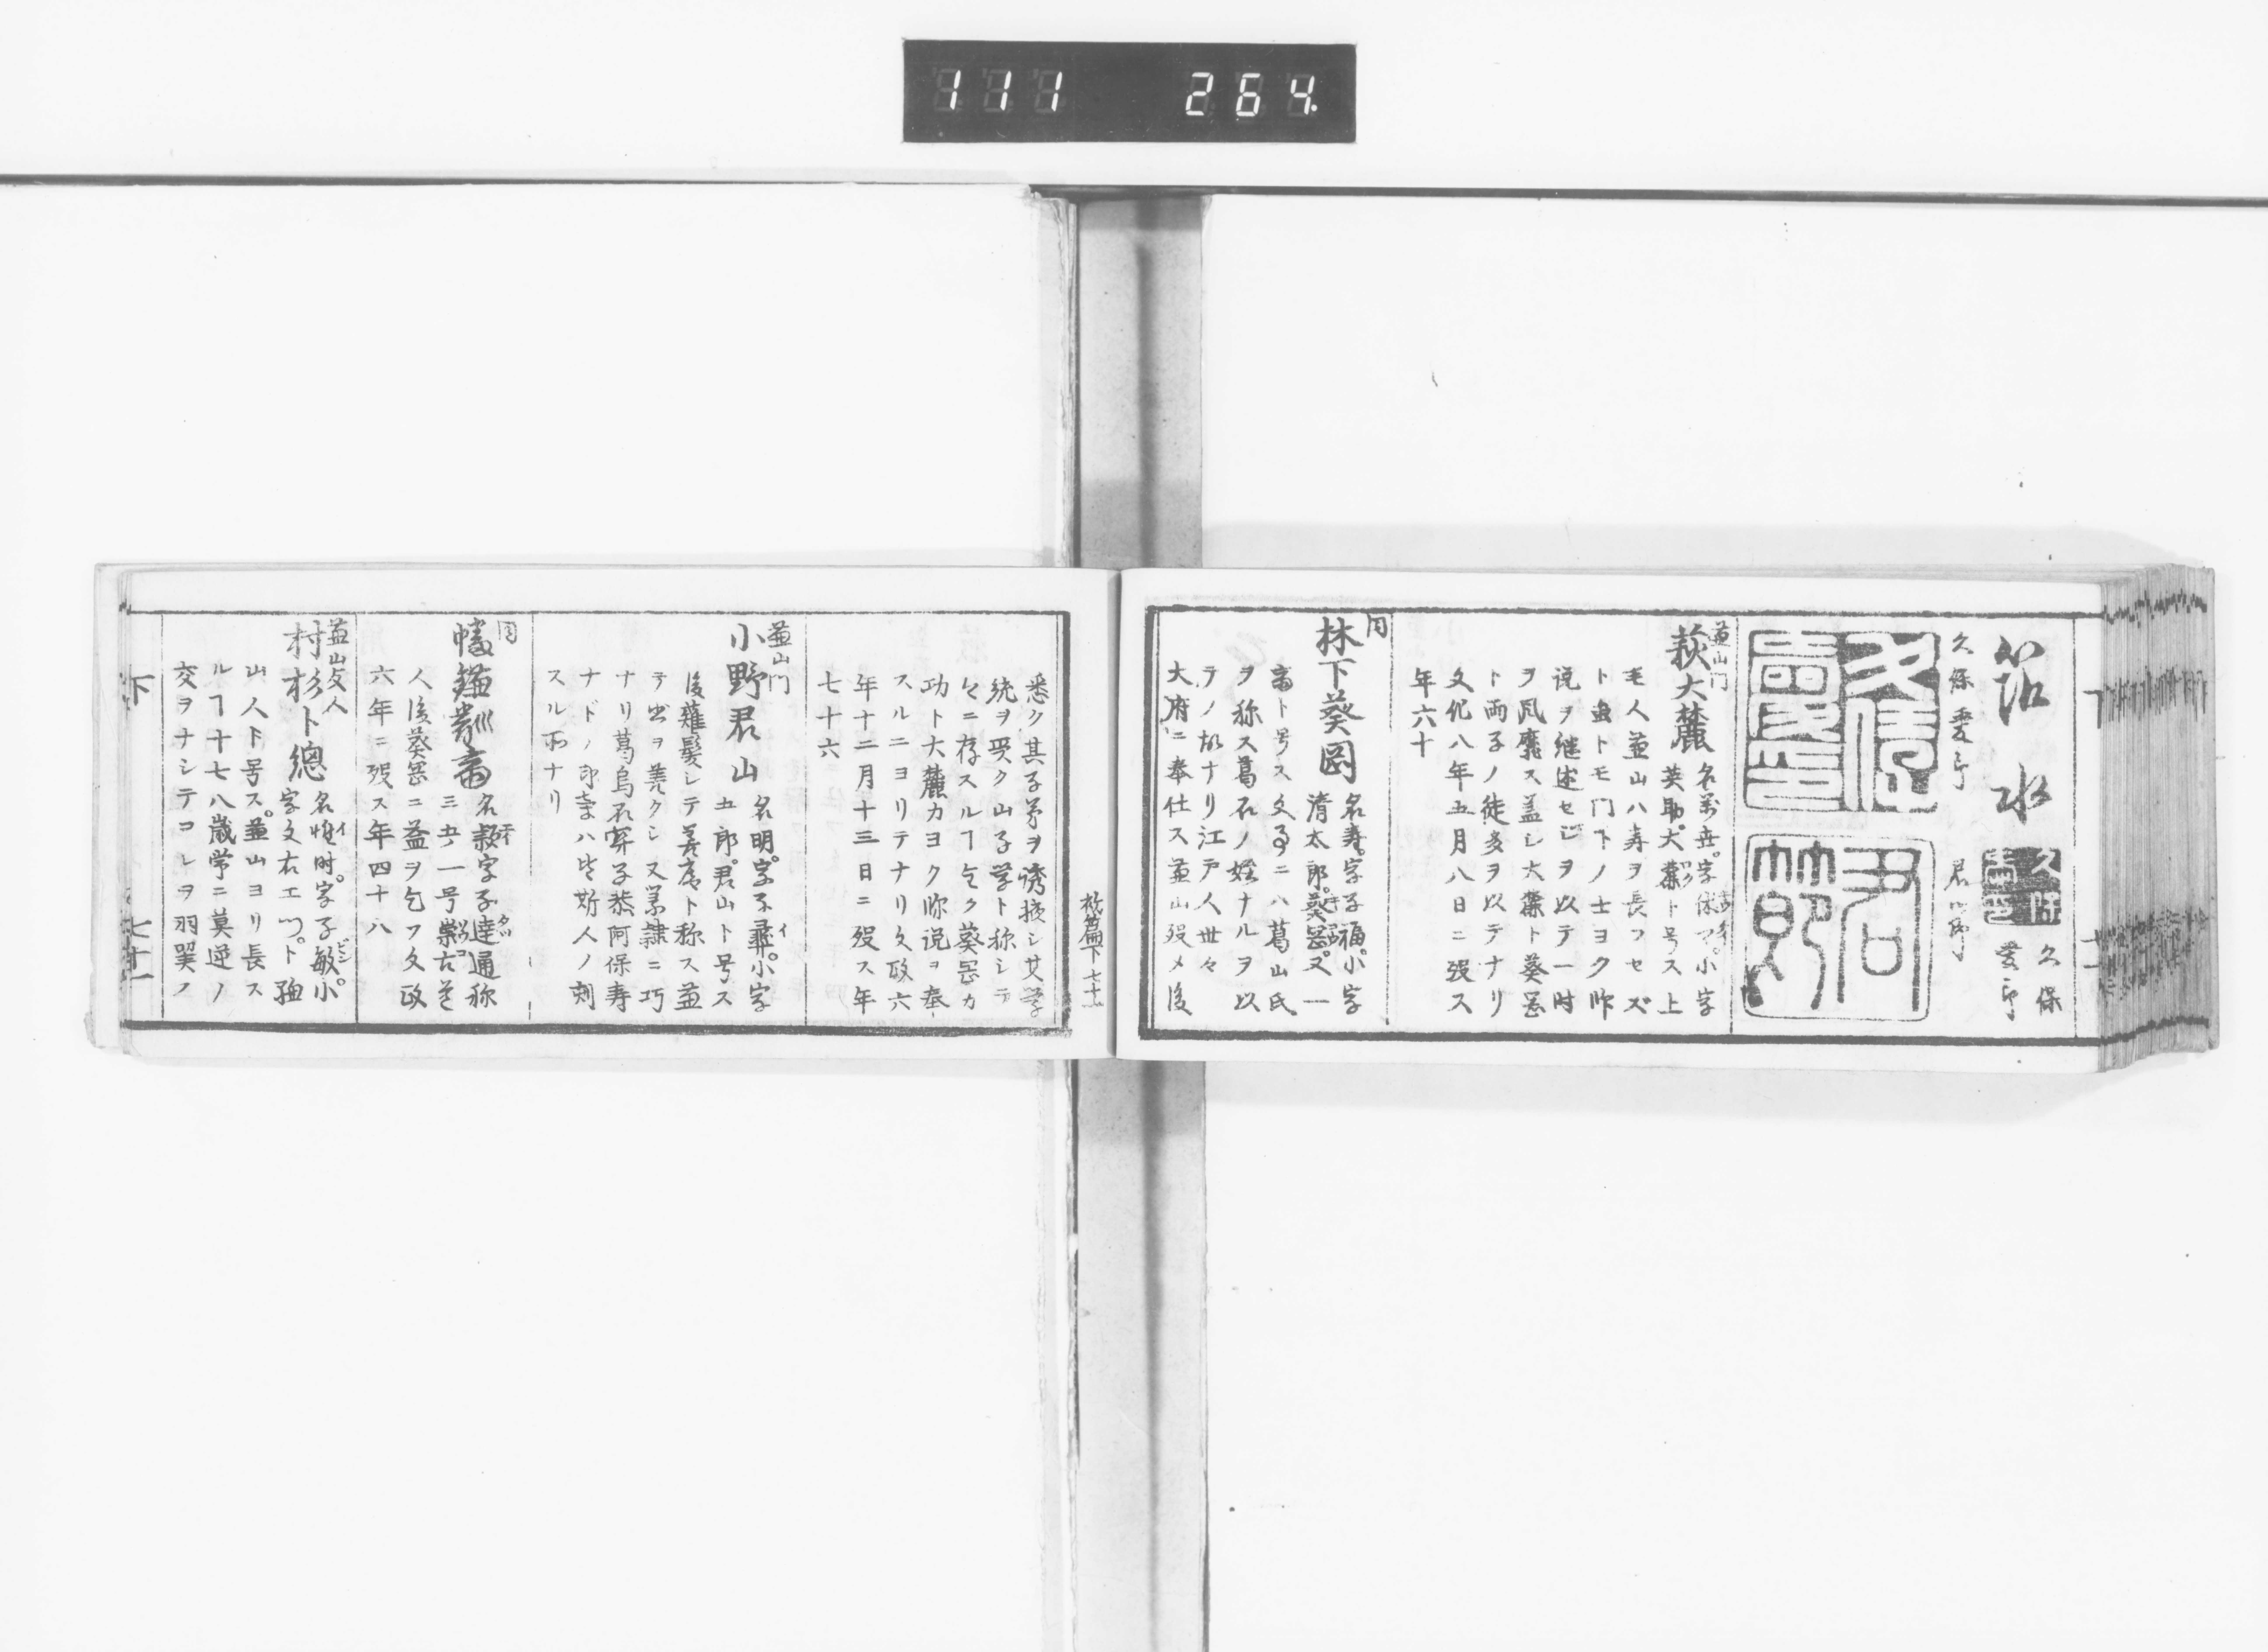 111 264.
箔水
久保
愛印
久保愛印
君節
益山門
萩大麓 名萬世。字休卿。小字
英助。大麓ト号ス上
毛人益山ハ寿ヲ長フセズ
ト虽トモ門下ノ士ヨク師
说ヲ継述セシヲ以テ一时
ヲ風靡ス盖シ大麓ト葵罡
ト両子ノ徒多ヲ以テナリ
文化八年五月八日ニ殁ス
年六十
同
林下葵岡 名寿。字子福。小字
清太郎。葵罡。又一
斎ト号ス文事ニハ葛山氏
ヲ称ス葛石ノ姓ナルヲ以
テノ故ナリ江戸人世々
大府ニ奉仕ス益山殁メ後
悉ク其子弟ヲ誘掖シ其学
统ヲ受ク山子学ト称シテ
今ニ存スルヿ全ク葵罡カ
功ト大麓カヨク师说ヲ奉
スルニヨリテナリ文政六
年十二月十三日ニ殁ス年
七十六
益山門
小野君山 名明。字子彝。小字
五郎。君山ト号ス
後薙髪シテ善庵ト称ス益
テ书ヲ善クシ又篆隷ニ巧
ナリ葛烏石寧子恭阿保寿
ナドノ印章ハ皆斯人ノ刻
スル所ナリ
同
斎 名 字子達通称
三五一号崇古
人後葵罡ニ益ヲ乞フ文政
六年ニ殁ス年四十八
益山友人
村杉卜總 名惟时。字子敏。小
字文右エ门。ト
山人ト号ス。益山ヨリ長ス
ルヿ十七八歳常ニ莫逆ノ
交ヲナシテコレヲ羽翼ノ
下 七十一